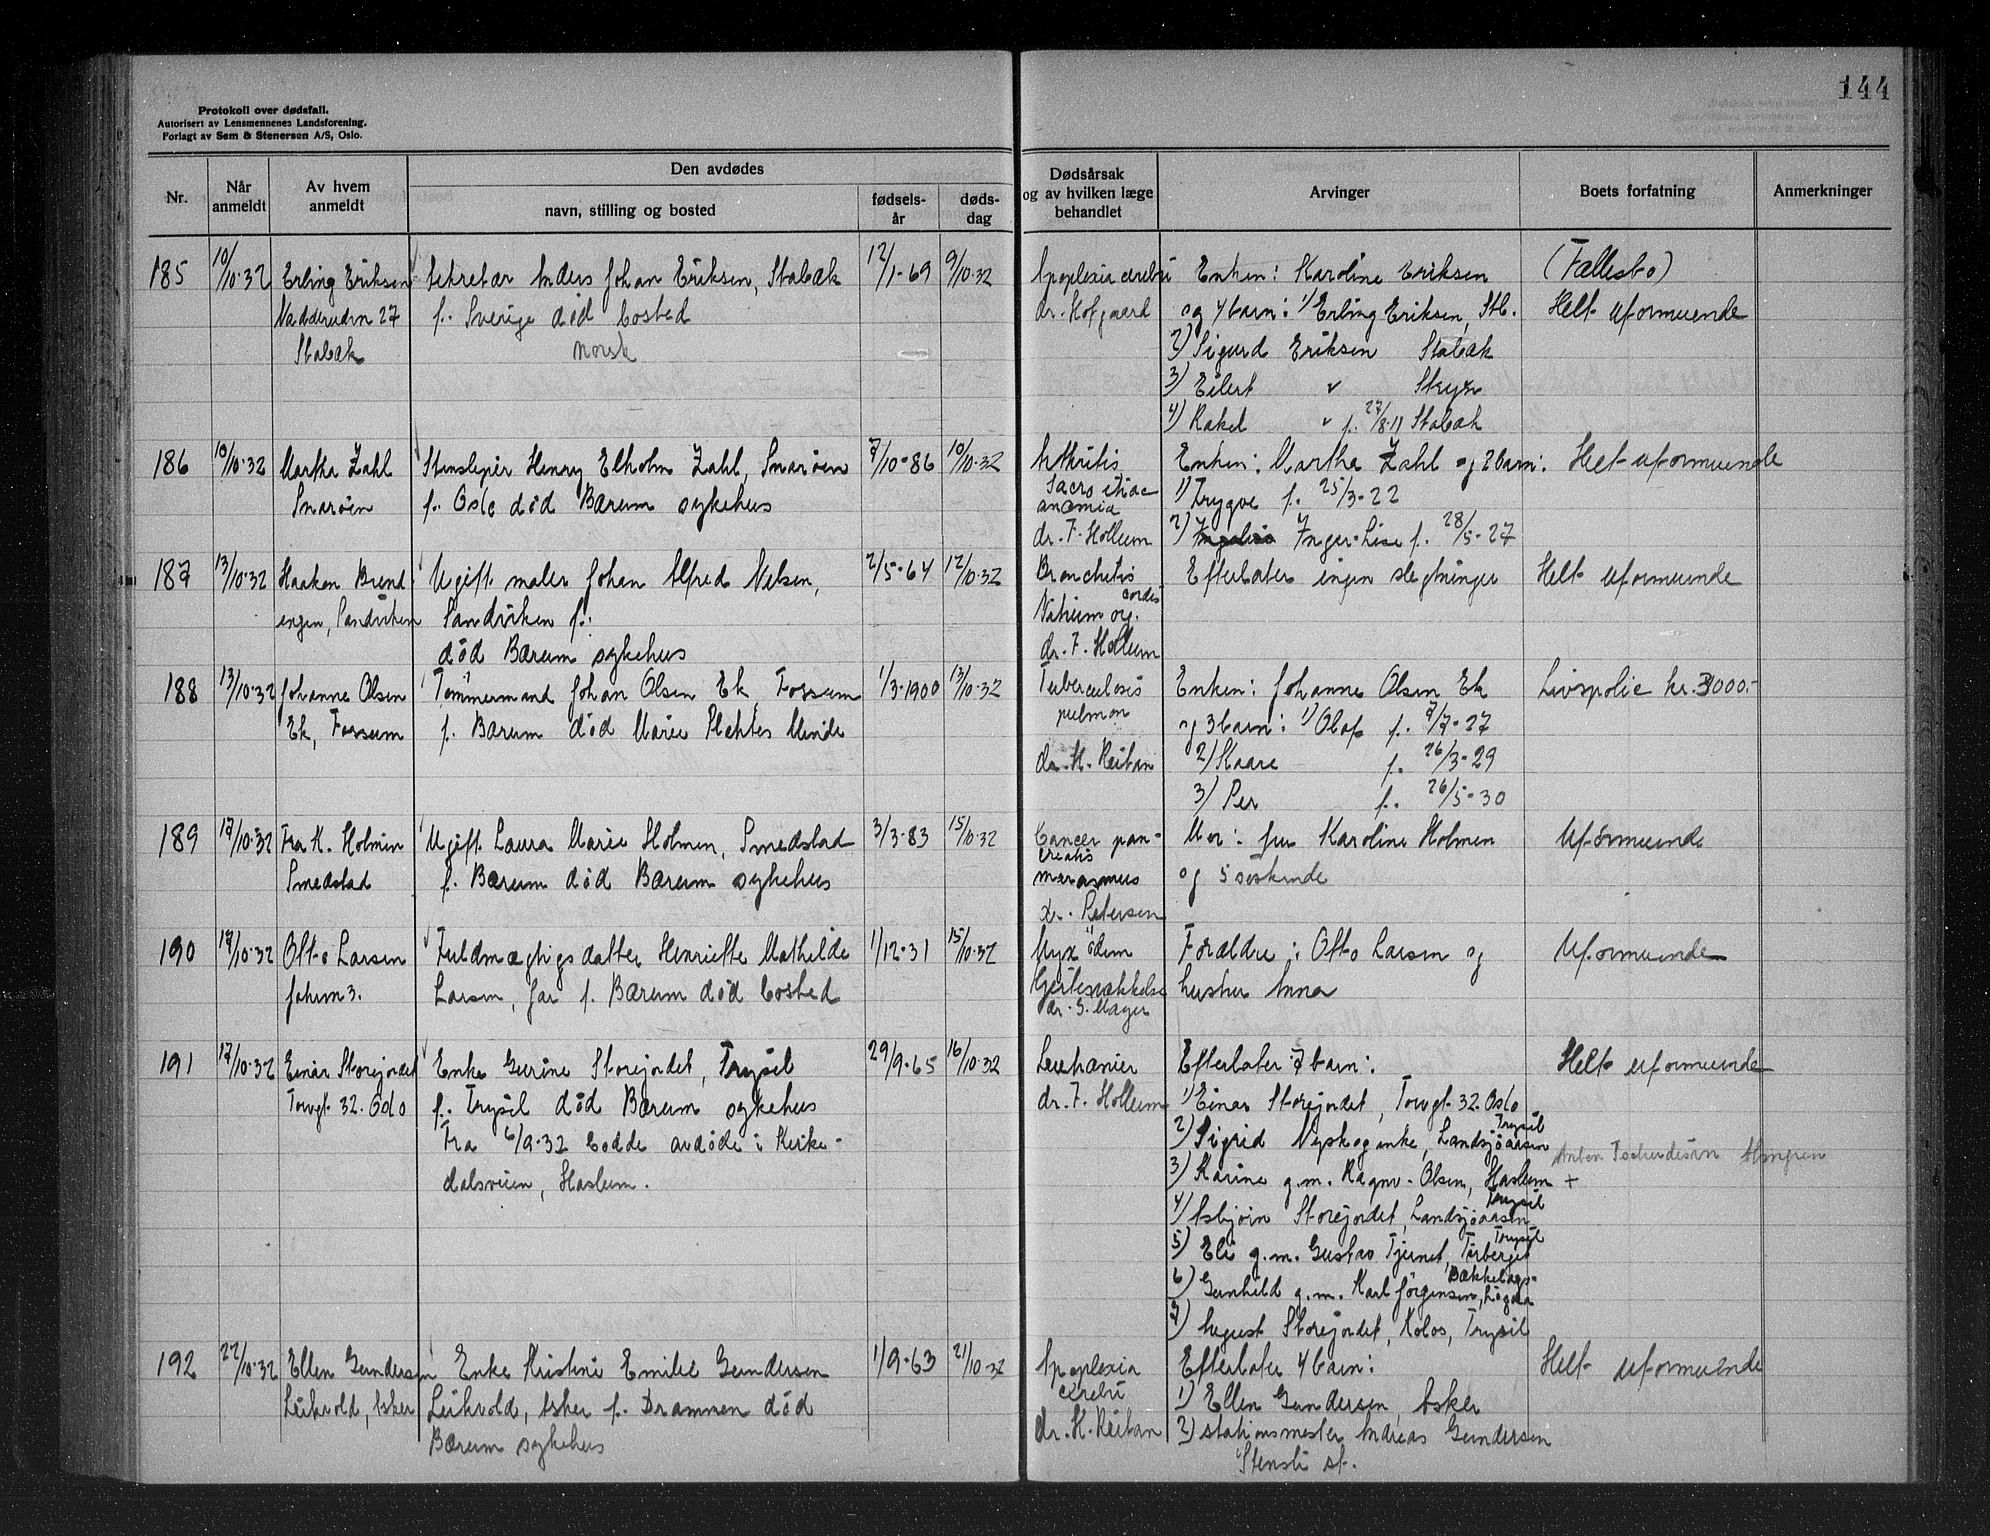 144
Protokoll over dødsfall.
Autorisert av Lensmennenes Landsforening.
Forlagt av Sem & Stenersen A/S, Oslo.
Nr.
Når anmeldt
Av hvem anmeldt
Den avdødes
navn, stilling og bosted
fødsels-år
døds-dag
Dødsårsak og av hvilken læge behandlet
Arvinger
Boets forfatning
Anmerkninger
185 10/10-32 Erling Eriksen Sekretær Anders Johan Eriksen, Stabæk 12/1-69 9/10-32 Apoplexia cerebri Enken: Karoline Eriksen (Fællesbo)
Nadderudvn 27 f. Sverige død bosted dr. Hofgaard og 4 barn: 1) Erling Eriksen, Stb. Helt uformuende
Stabæk norsk 2) Sigurd Eriksen Stabæk
3) Eilert " 
4) Rakel " f. 27/8-11 Stabæk
186 10/10-32 Martha Zahl Henry Elholm Zahl, Snarøen 7/10-86 10/10-32 Arthritis Enken: Martha Zahl og 2 barn: Helt uformuende
Snarøen f. Oslo død Bærum sykehus sacro iliac 1) Trygve f. 25/3-22
anæmia
dr. F. Hollum 2) Inger-Lise f. 28/5-27
187 13/10-32 Haaken Brend Ugift maler Johan Alfred Nelsen, 2/5-64 12/10-32 Bronchitis Efterlater ingen slegtninger Helt uformuende
engen, Sandviken Sandviken f.: cordis
Vitium org.
død Bærum sykehus dr. F. Hollum
188 13/10-32 Johanne Olsen Tømmermand Johan Olsen Ek, Fossum 1/3-1900 13/10-32 Tuberculosis Enken: Johanne Olsen Ek Livspolie kr. 3000.-
Ek, Fossum f. Bærum død Marie Plahtes Minde pulmon og 3 barn: 1) Olaf f. 7/7-27
dr. K. Reitan 2) Kaare f. 26/3-29
3) Per f. 26/5-30
189 17/10-32 Fra K. Holmen Ugift Laura Marie Holmen, Smedstad 3/3-83 15/10-32 Cancer pan- Mor: fru Karoline Holmen Uformuende
Smedstad f. Bærum død Bærum sykehus creatis
marasmus og 5 søskende
dr. Petersen
190 17/10-32 Otto Larsen Fuldmægtigsdatter Henriette Mathilde 1/12-31 15/10-32 Myxødem Forældre: Otto Larsen og Uformuende
Jahrm 3. Larsen, Jar f. Bærum død bosted Hjertesvækkelse hustru Anna
dr. G. Mager
191 17/10-32 Einar Storejordet Enke Gurine Storejordet, Trysil 29/9-65 16/10-32 Efterlater 7 barn: Helt uformuende
Torvgt. 32. Oslo f. Trysil død Bærum sykehus dr. F. Hollum 1) Einar Storejordet, Torvgt. 32. Oslo
Fra 6/9-32 bodde avdøde i Kirke- 2) Sigrid Nyskog enke, Landsjøaasen Trysil
dalsveien, Haslum. 3) Karine g.m. Ragnv. Olsen, Haslum +
4) Asbjørn Storejordet, Landsjøaasen Trysil
5) Eli g.m. Gustav Tjernet, Tørberget Trysil
6) Gunhild g.m. Karl Jørgensen, Bækkelags-
7) August Storejordet, Kolos, Trysil
192 22/10-32 Ellen Gundersen Enke Kristine Emilie Gundersen 1/9-63 21/10-32 Apoplexia Efterlater 4 barn: Helt uformuende
Leikvold, Asker Leikvold, Asker f. Drammen død cerebri 1) Ellen Gundersen, Asker
Bærum sykehus dr. K. Reitan 2) stationsmester Andreas Gundersen
Stensli st.